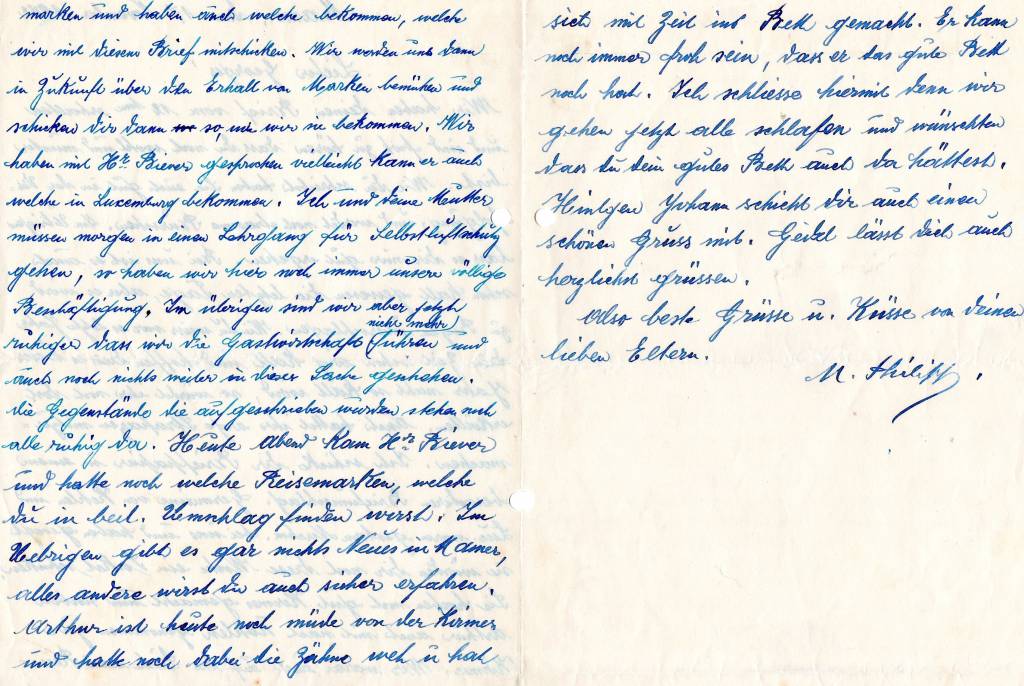 marken und haben auch welche bekommen, welche
wir mit diesem Brief mitschicken. Wir werden uns dann
in Zukunft über den Erhalt von Marken bemühen und
schicken dir dann so, wie wir sie bekommen. Wir
haben mit Hr. Biever gesprochen vielleicht kann er auch
welche in Luxemburg bekommen. Ich und deine Mutter
müssen morgen in einen Lehrgang für Selbstluftschutz
gehen, so haben wir hier noch immer unsere völlige
Beschäftigung. Im übrigen sind wir aber jetzt
ruhiger dass wir die Gastwirtschaft nicht mehr führen und
auch noch nichts weiter in dieser Sache geschehen.
die Gegenstände die aufgeschrieben wurden stehen noch
alle ruhig da. Heute Abend kam Hr. Biever
und hatte noch welche Reisemarken, welche
du in beil. Umschlag finden wirst. Im
Uebrigen gibt es gar nichts Neues in Mamer,
alles andere wirst du auch sicher erfahren.
Arthur ist heute noch müde von der Kirmes
und hatte noch dabei die Zähne weh u hat
sich mit Zeit ins Bett gemacht. Er kann
noch immer froh sein, dass er das gute Bett
noch hat. Ich schliesse hiermit denn wir
gehen jetzt alle schlafen und wünschten
dass du dein gutes Bett auch da hättest.
Hintgen Johann schickt dir auch einen
schönen Gruss mit. lässt dich auch
herzlichst grüssen.
Also beste Grüsse u. Küsse von deinen
lieben Eltern.
M. Philipp.